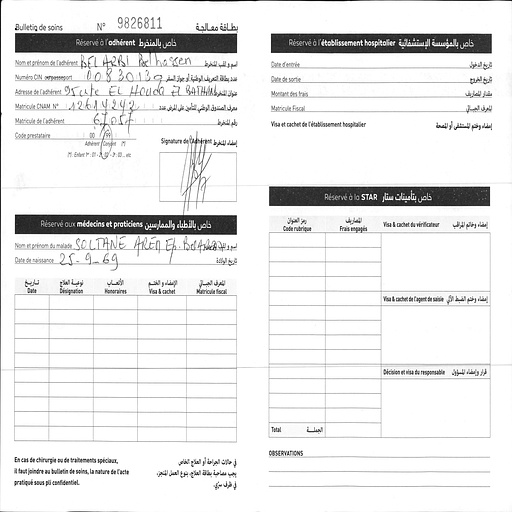 Bulletin de soins N° 9826811 بطاقة معالجة
Réservé à l'adhérent خاص بالمنخرط
Nom et prénom de l'adhérent BELARBI Belhassen إسم و لقب المنخرط
Numéro CIN ou passeport 00830137 عدد بطاقة التعريف الوطنية أو جواز السفر
Adresse de l'adhérent 95 cite EL Houda El BATHAN عنوان المنخرط
Matricule CNAM N° 12614242 معرف الصندوق الوطني للتأمين على المرض عدد
Matricule de l'adhérent 67057 رقم المنخرط
Code prestataire 00 99
Adhérent Conjoint (*)
(*) : Enfant 1er : 01 - 2 : 02 - 3 : 03 ... etc
Signature de l'Adhérent إمضاء المنخرط
Réservé aux médecins et praticiens خاص بالأطباء والممارسين
Nom et prénom du malade SOLTANE إسم و لقب المريض
Date de naissance 25-9-69 تاريخ الولادة
تـاريـخ نوعية العلاج الأتعـاب الإمضاء و الختـم المعرف الجبـائي
Date Désignation Honoraires Visa & cachet Matricule fiscal
En cas de chirurgie ou de traitements spéciaux,
il faut joindre au bulletin de soins, la nature de l'acte
pratiqué sous pli confidentiel.
في حالات الجراحة أو العلاج الخاص
يجب مصاحبة بطاقة العلاج، بنوع العمل المنجز،
في ظرف سرّي.
Réservé à l'établissement hospitalier خاص بالمؤسسة الإستشفائية
Date d'entrée تاريخ الدخول
Date de sortie تاريخ الخروج
Montant des frais مقدار المصاريف
Matricule Fiscal المعرف الجبـائي
Visa et cachet de l'établissement hospitalier إمضاء وختم المستشفى أو المصحة
Réservé à la STAR خاص بتأمينات ستار
رمز العنوان المصاريف
Code rubrique Frais engagés
Visa & cachet du vérificateur إمضاء وخاتم المراقب
Visa & cachet de l'agent de saisie إمضاء وختم الضبط الآلي
Décision et visa du responsable قرار وإمضاء المسؤول
Total الجملــة
OBSERVATIONS